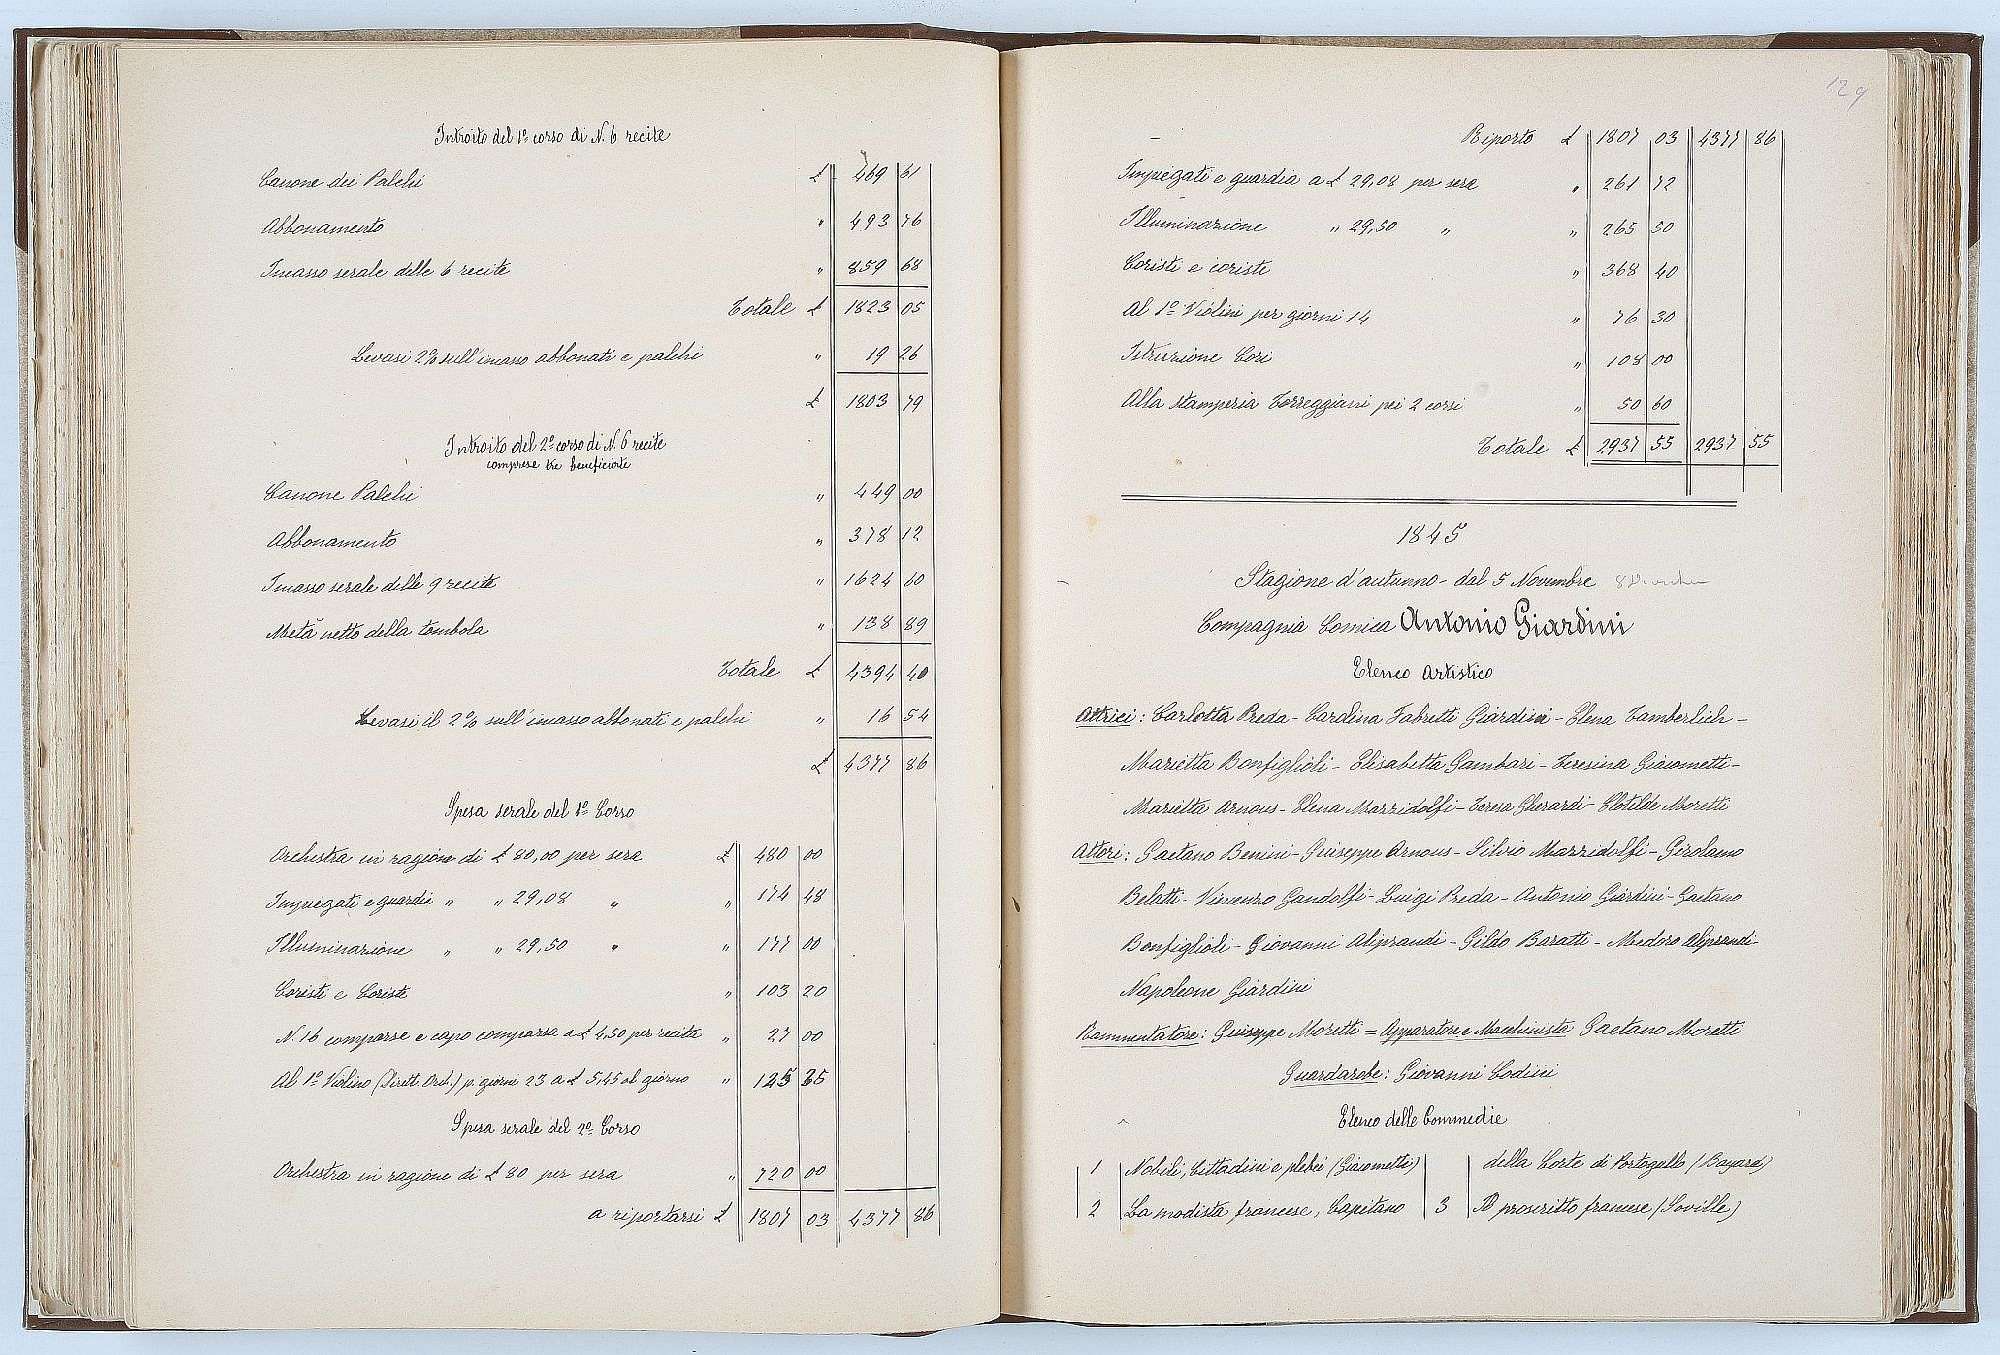 Introito del 1º corso di N. 6 recite
Canone dei Palchi £ 469 61
Abbonamento " 493 76
Incasso serale delle 6 recite " 859 68
Totale £ 1823 05
Levasi 2% sull'incasso abbonati e palchi " 19 26
£ 1803 79
Introito del 2º corso di N. 6 recite
comprese tre beneficiate
Canone Palchi " 449 00
Abbonamento " 378 12
Incasso serale delle 9 recite " 1624 60
Metà netto della tombola " 138 89
Totale £ 4394 40
Levasi il 2% sull'incasso abbonati e palchi " 16 54
£ 4377 86
Spesa serale del 1º Corso
Orchestra in ragione di £ 80,00 per sera £ 480 00
Impiegati e guardie " " 29,08 " " 174 48
Illuminazione " " 29,50 " " 177 00
Coristi e Coriste " 103 20
N. 16 comparse e capo comparsa a £ 4,50 per recita " 27 00
Al 1º Violino (Dirett. Orch.) p. giorni 23 a £ 5,45 al giorno " 125 35
Spesa serale del 2º Corso
Orchestra in ragione di £ 80 per sera " 720 00
a riportarsi £ 1807 03 4377 86
129
Riporto £ 1807 03 4377 86
Impiegati e guardia a £ 29,08 per sera " 261 72
Illuminazione " 29,50 " " 265 50
Coristi e coriste " 368 40
Al 1º Violini per giorni 14 " 76 30
Istruzione Cori " 108 00
Alla stamperia Torreggiani pei 2 corsi " 50 60
Totale £ 2937 55 2937 55
1845
Stagione d'autunno - dal 5 Novembre
Compagnia Comica Antonio Giardini
Elenco Artistico
Attrici: Carlotta Preda - Carolina Fabretti Giardini - Elena Tamberlich -
Marietta Bonfiglioli - Elisabetta Gambari - Teresina Giacometti -
Marietta Arnous - Elena Mazzidolfi - Teresa Gherardi - Clotilde Moretti
Attori: Gaetano Benini - Giuseppe Arnous - Silvio Mazzidolfi - Gerolamo
Belatti - Vincenzo Gandolfi - Luigi Preda - Antonio Giardini - Gaetano
Bonfiglioli - Giovanni Aliprandi - Gildo Baratti - Medoro Aliprandi -
Napoleone Giardini
Rammentatore: Giuseppe Moretti = Apparatore e Macchinista Gaetano Moretti
Guardarobe: Giovanni Codini
Elenco delle Commedie
1 Nobili, Cittadini e plebei (Giacometti)
2 La modista francese, Capitano
della Corte di Portogallo (Bayard)
3 Il proscritto francese (Soville)